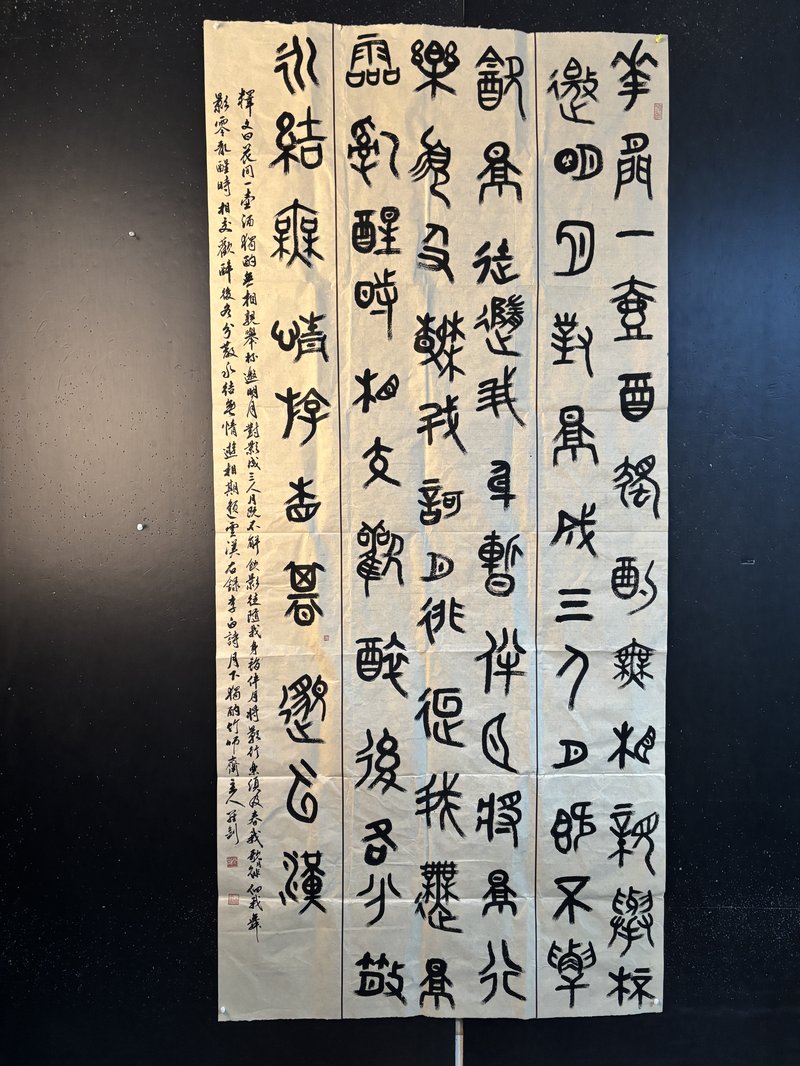 花間一壺酒獨酌無相親舉杯
邀明月對影成三人月既不解
飲影徒隨我身暫伴月將影行
樂須及春我歌月徘徊我舞影
零亂醒時相交歡醉後各分散
永結無情游相期邈雲漢
釋文曰花間一壺酒獨酌無相親舉杯邀明月對影成三人月既不解飲影徒隨我身暫伴月將影行樂須及春我歌月徘徊我舞
影零亂醒時相交歡醉後各分散永結無情遊相期邈雲漢右錄李白詩月下獨酌竹齋主人